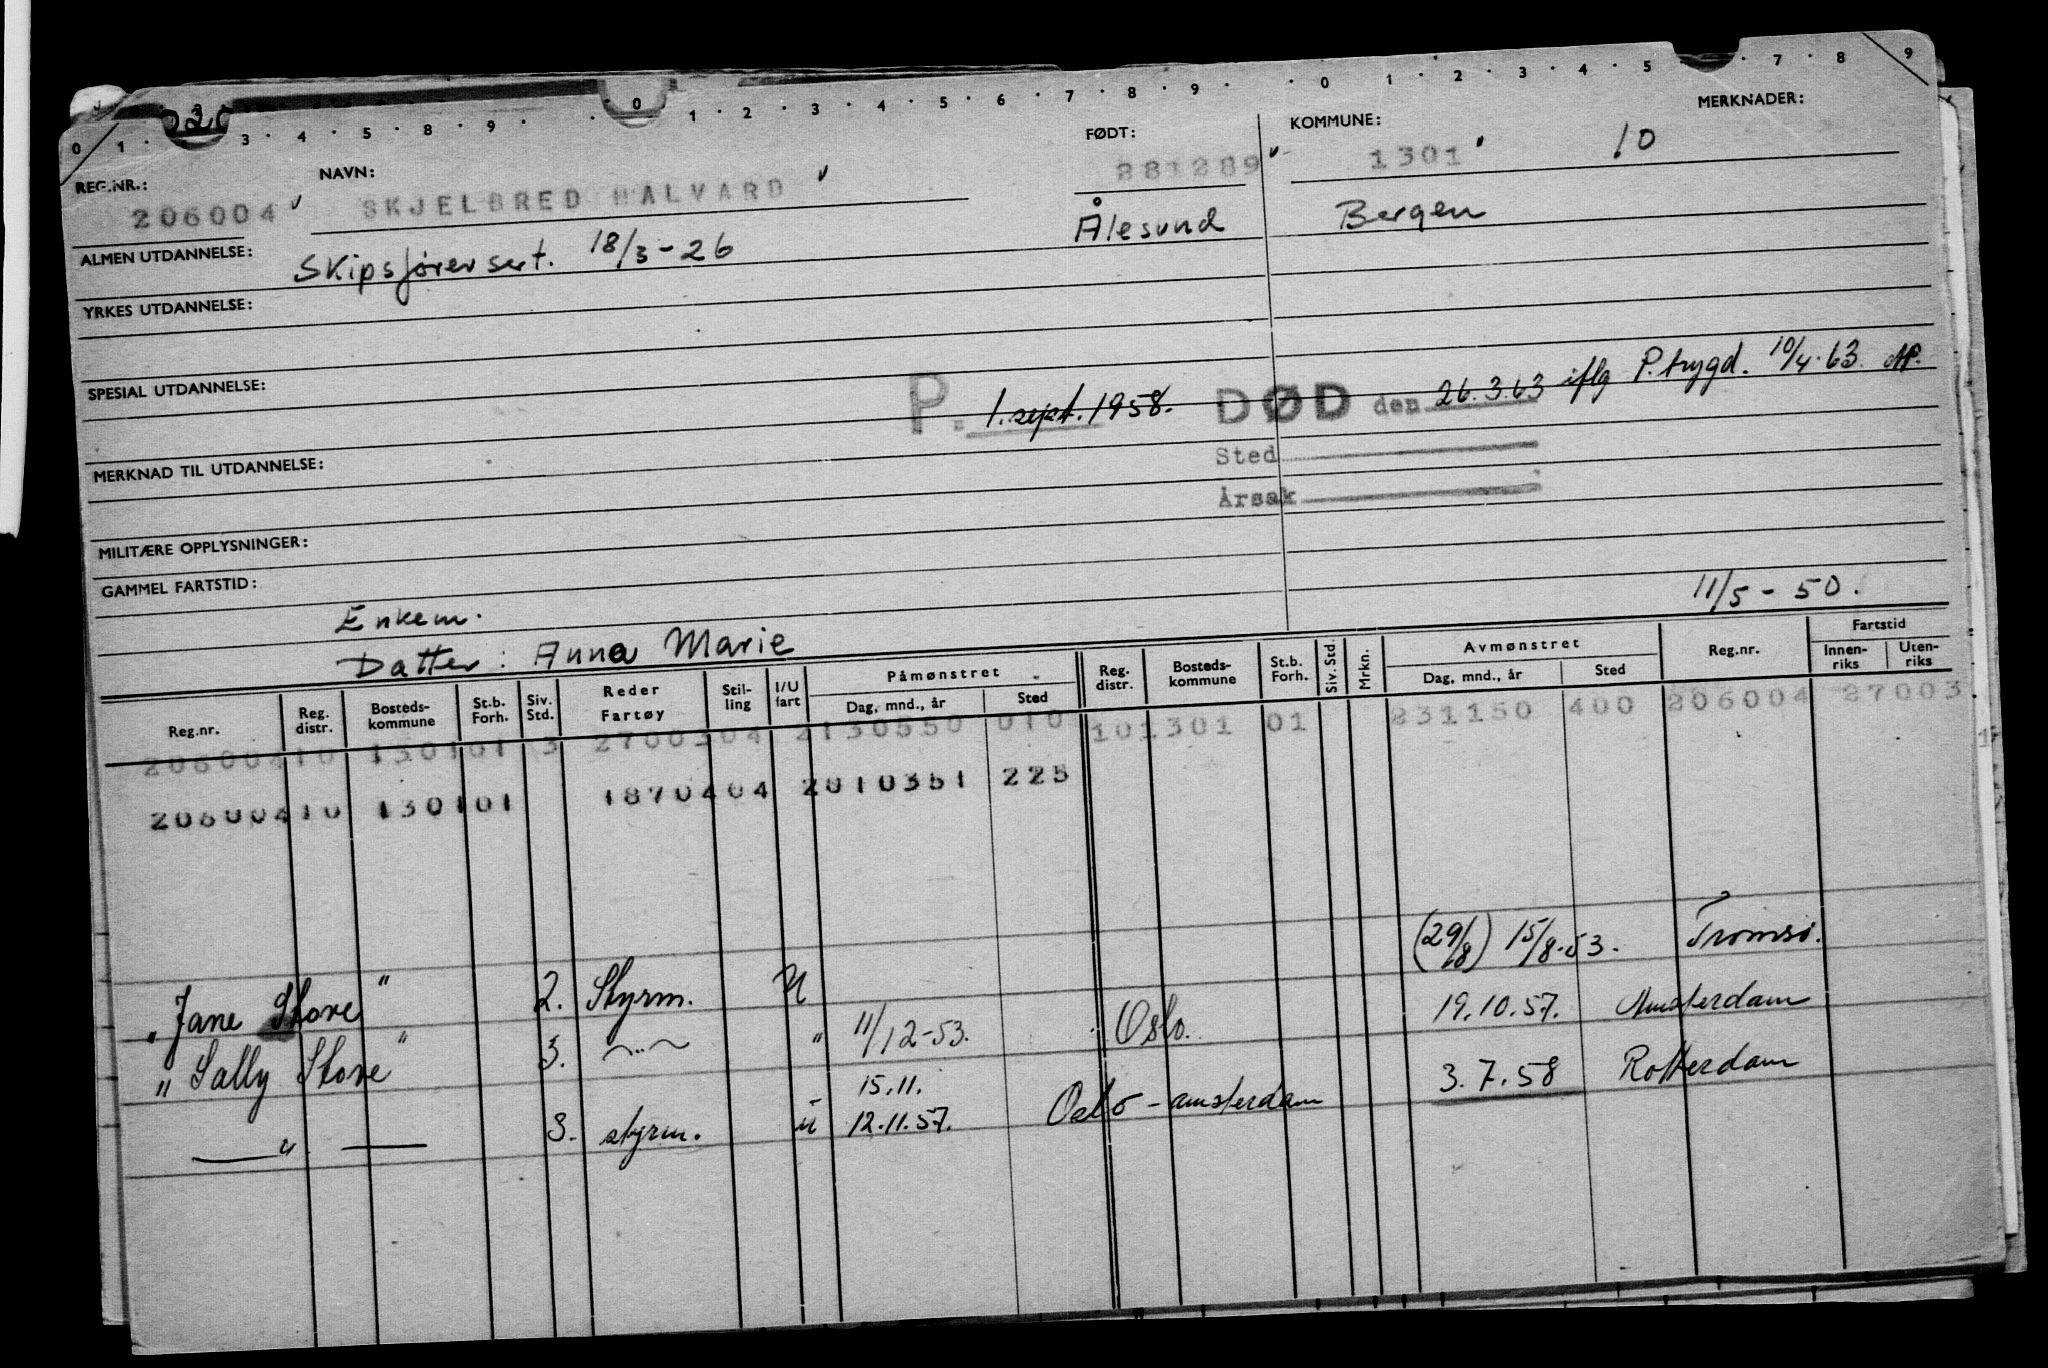 0 1 · 3 · 4 · 5 · 8 · 9 · · 0 1 · 2 · 3 · 4 · 5 · 6 · 7 · 8 · 9 · · 0 · 1 · 2 · 3 · 4 · 5 · 7 · 8 · 9
REG.NR.: NAVN: FØDT: KOMMUNE: MERKNADER:
206004 SKJELBRED HALVARD 281289 1301 10
Ålesund Bergen
ALMEN UTDANNELSE: Skipsførersert. 18/3-26
YRKES UTDANNELSE:
SPESIAL UTDANNELSE:
P. 1. sept. 1958. DØD den 26.3.63 iflg P.trygd. 10/4.63
MERKNAD TIL UTDANNELSE:
Sted
Årsak
MILITÆRE OPPLYSNINGER:
GAMMEL FARTSTID:
Enkem. 11/5-50.
Datter: Anna Marie
Reg.nr. Reg. distr. Bosteds-kommune St.b. Forh. Siv. Std. Reder Fartøy Stil-ling I/U fart Påmønstret Dag, mnd., år Sted Reg. distr. Bosteds-kommune St.b. Forh. Siv. Std. Mrkn. Avmønstret Dag, mnd., år Sted Reg.nr. Fartstid Innen-riks Uten-riks
20600410 130101 3 2700304 2130550 010 101301 01 231150 400 206004 27003
20600410 130101 1870404 2010351 225
"Jane Stove" 2. Styrm. U (29/8) 15/8.53. Tromsø.
"Sally Stove" 3. —"— " 11/12-53. Oslo. 19.10.57. Amsterdam
15.11.
—"— 3. styrm. u 12.11.57. Oslo - amsterdam 3.7.58 Rotterdam